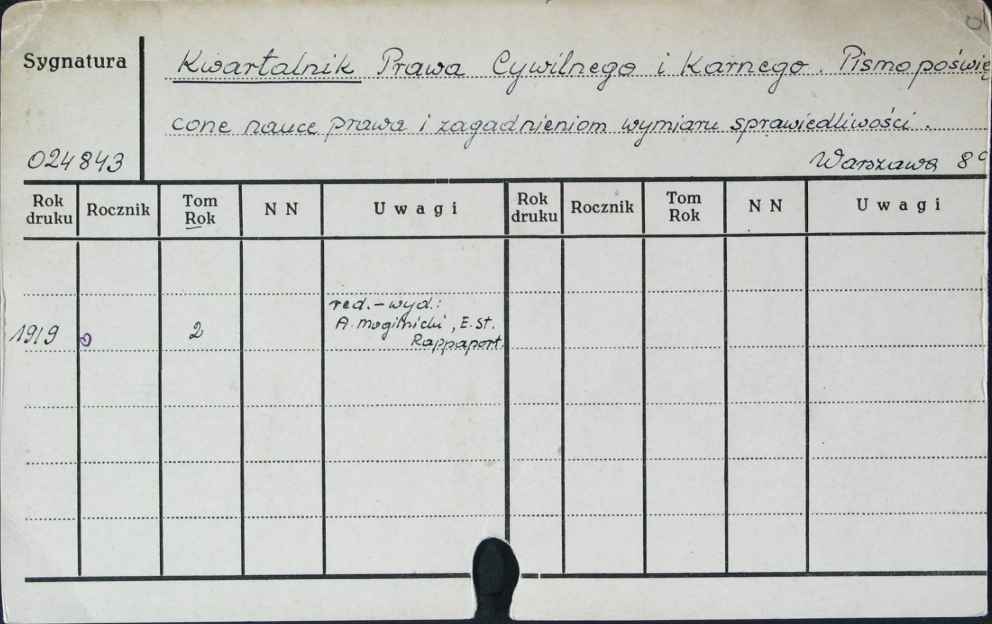 Sygnatura
Kwartalnik Prawa Cywilnego i Karnego. Pismo poświę
cone nauce prawa i zagadnieniom wymiaru sprawiedliwości.
024843
Warszawa 8°
Rok druku Rocznik Tom Rok N N Uwagi Rok druku Rocznik Tom Rok N N Uwagi
red.-wyd.:
1919 2 A. Mogilnicki, E. St.
Rappaport.